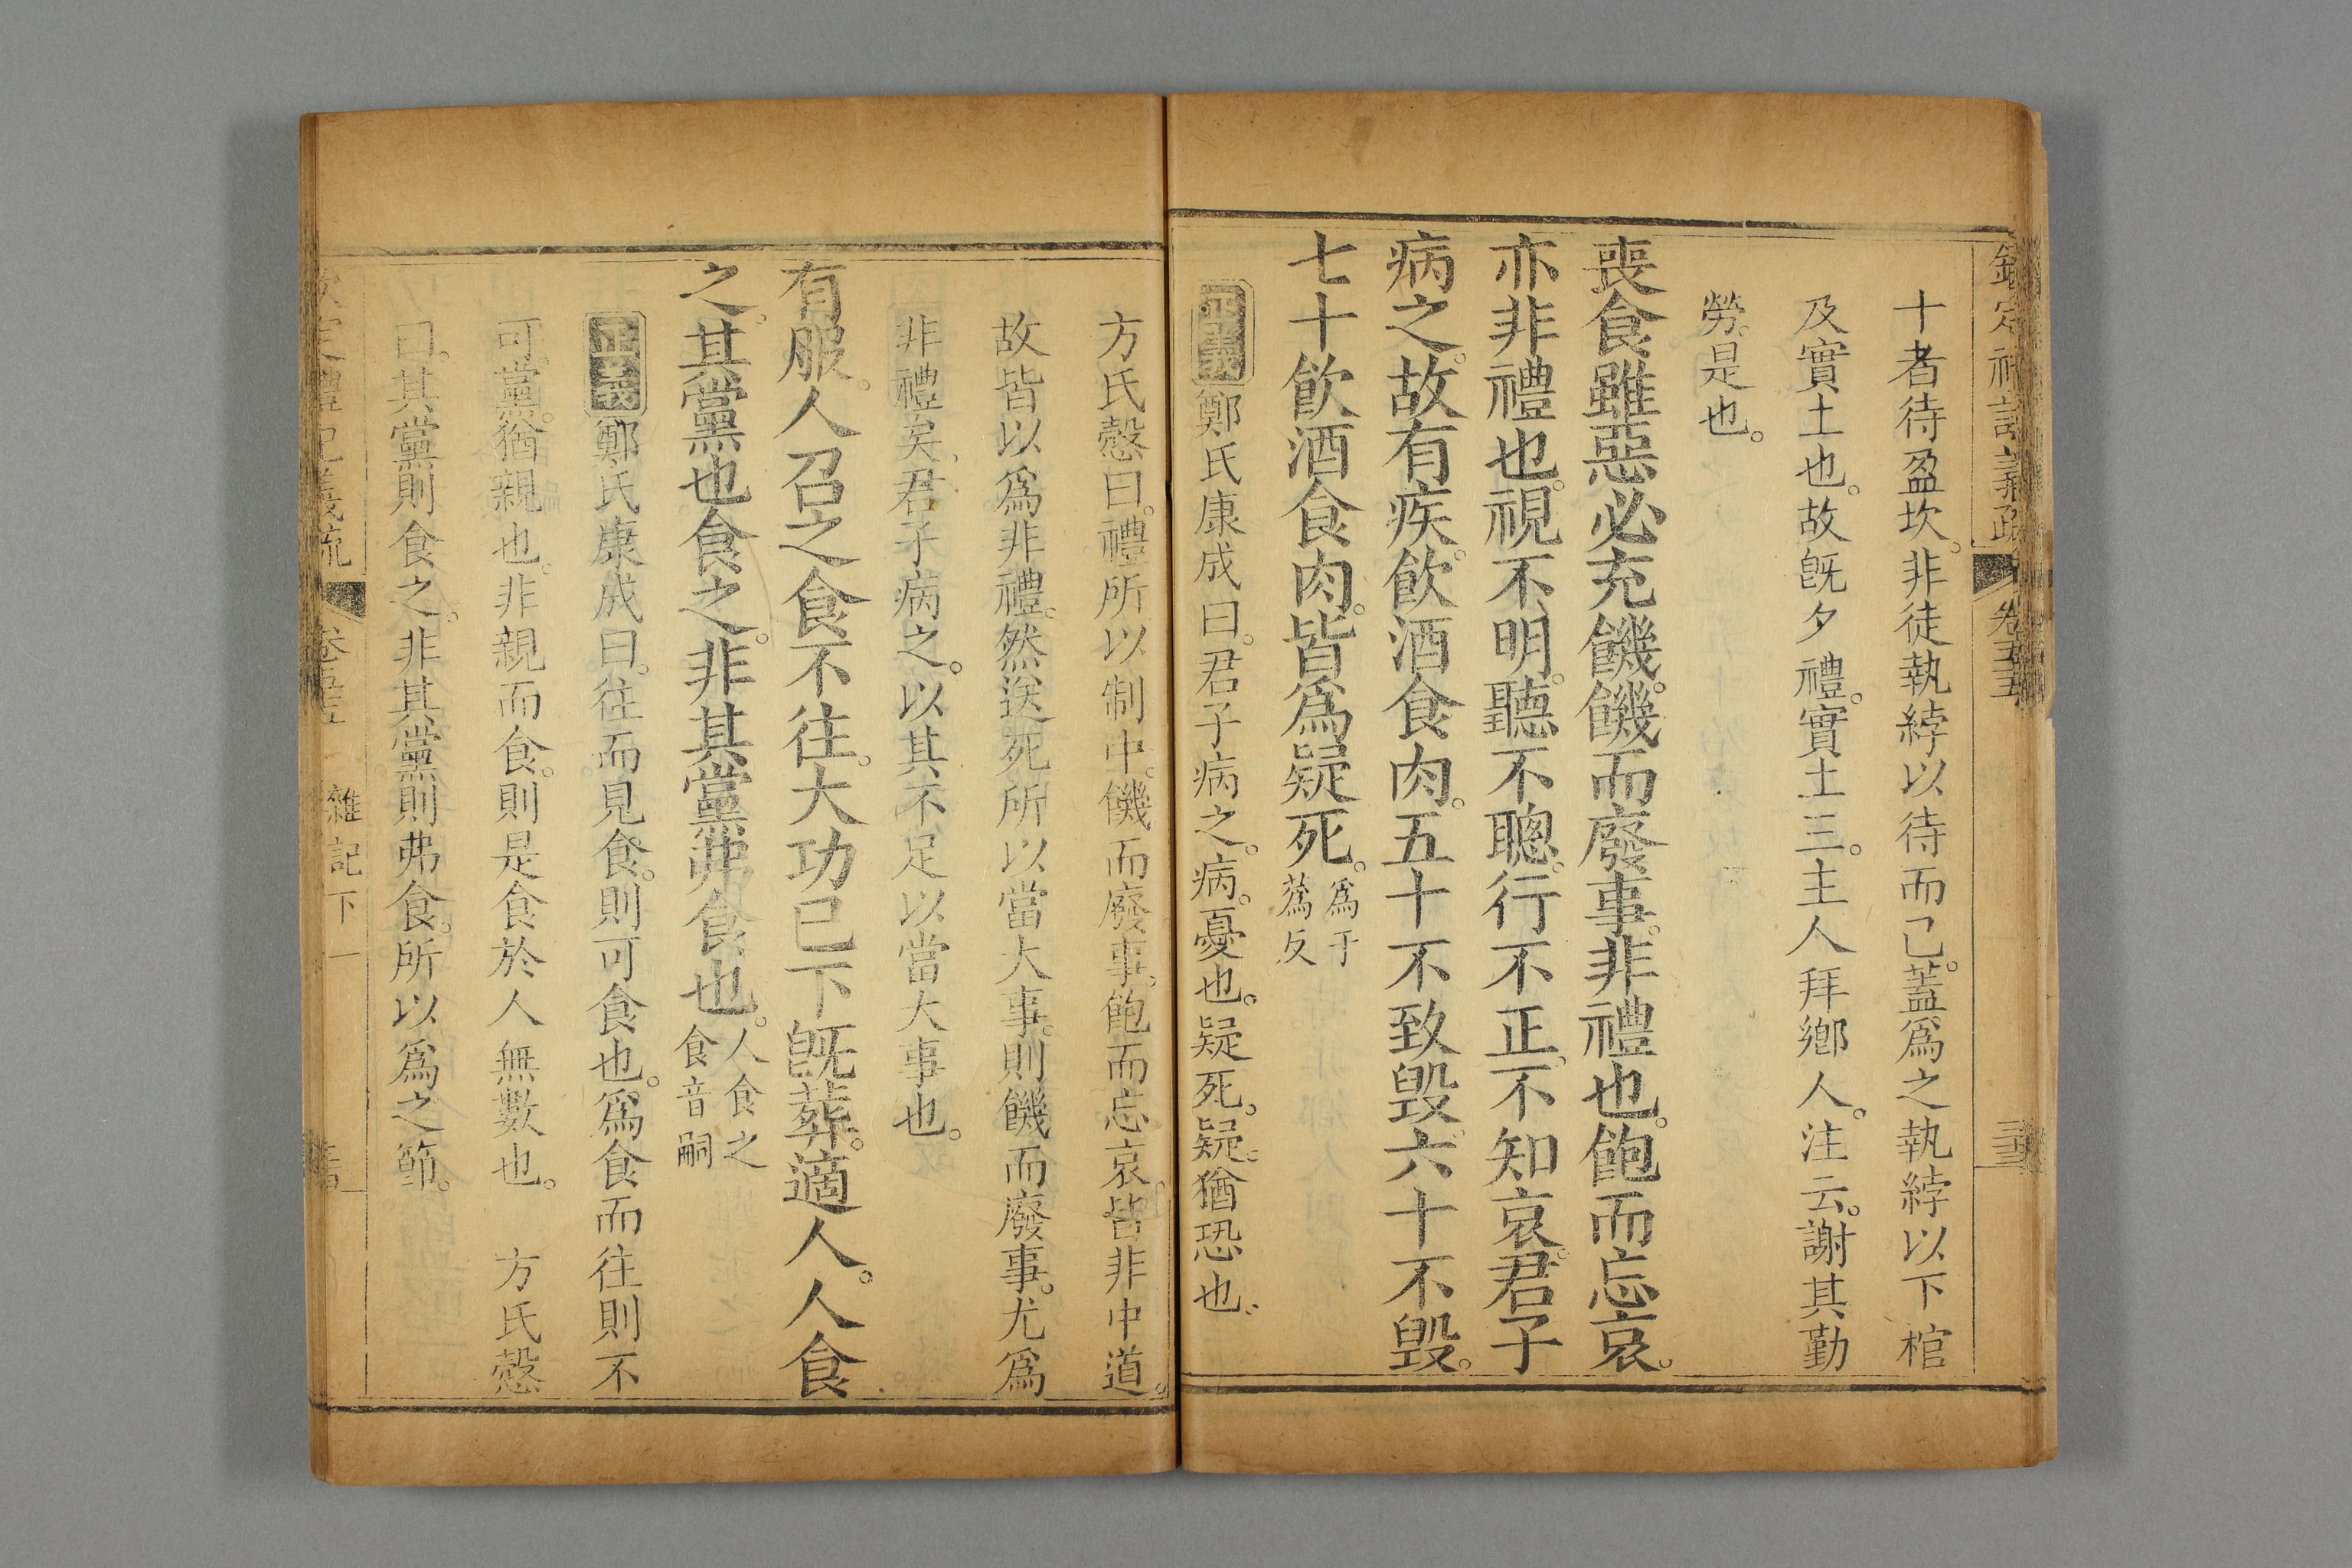 十者待盈坎。非徒執綍以待而己。蓋爲之執綍以下棺
及實土也。故旣夕禮。實土三。主人拜鄉人。注云。謝其勤
勞。是也。
喪食雖惡必充饑。饑而廢事。非禮也。飽而忘哀。
亦非禮也。視不明。聽不聰。行不正。不知哀。君子
病之。故有疾。飲酒食肉。五十不致毀。六十不毀。
七十飲酒食肉。皆爲疑死。爲于蒍反
正義鄭氏康成曰。君子病之。病。憂也。疑死。疑。猶恐也。
方氏慤曰。禮所以制中。饑而廢事。飽而忘哀。皆非中道。
故皆以爲非禮。然送死所以當大事。則饑而廢事。尤爲
非禮矣。君子病之。以其不足以當大事也。
有服。人召之食不往。大功已下旣葬。適人。人食
之。其黨也食之。非其黨弗食也。人食之食音嗣
正義鄭氏康成曰。往而見食。則可食也。爲食而往則不
可。黨。猶親也。非親而食。則是食於人無數也。 方氏慤
曰。其黨則食之。非其黨則弗食。所以爲之節。
欽定禮記義疏 卷五十五 雜記下一